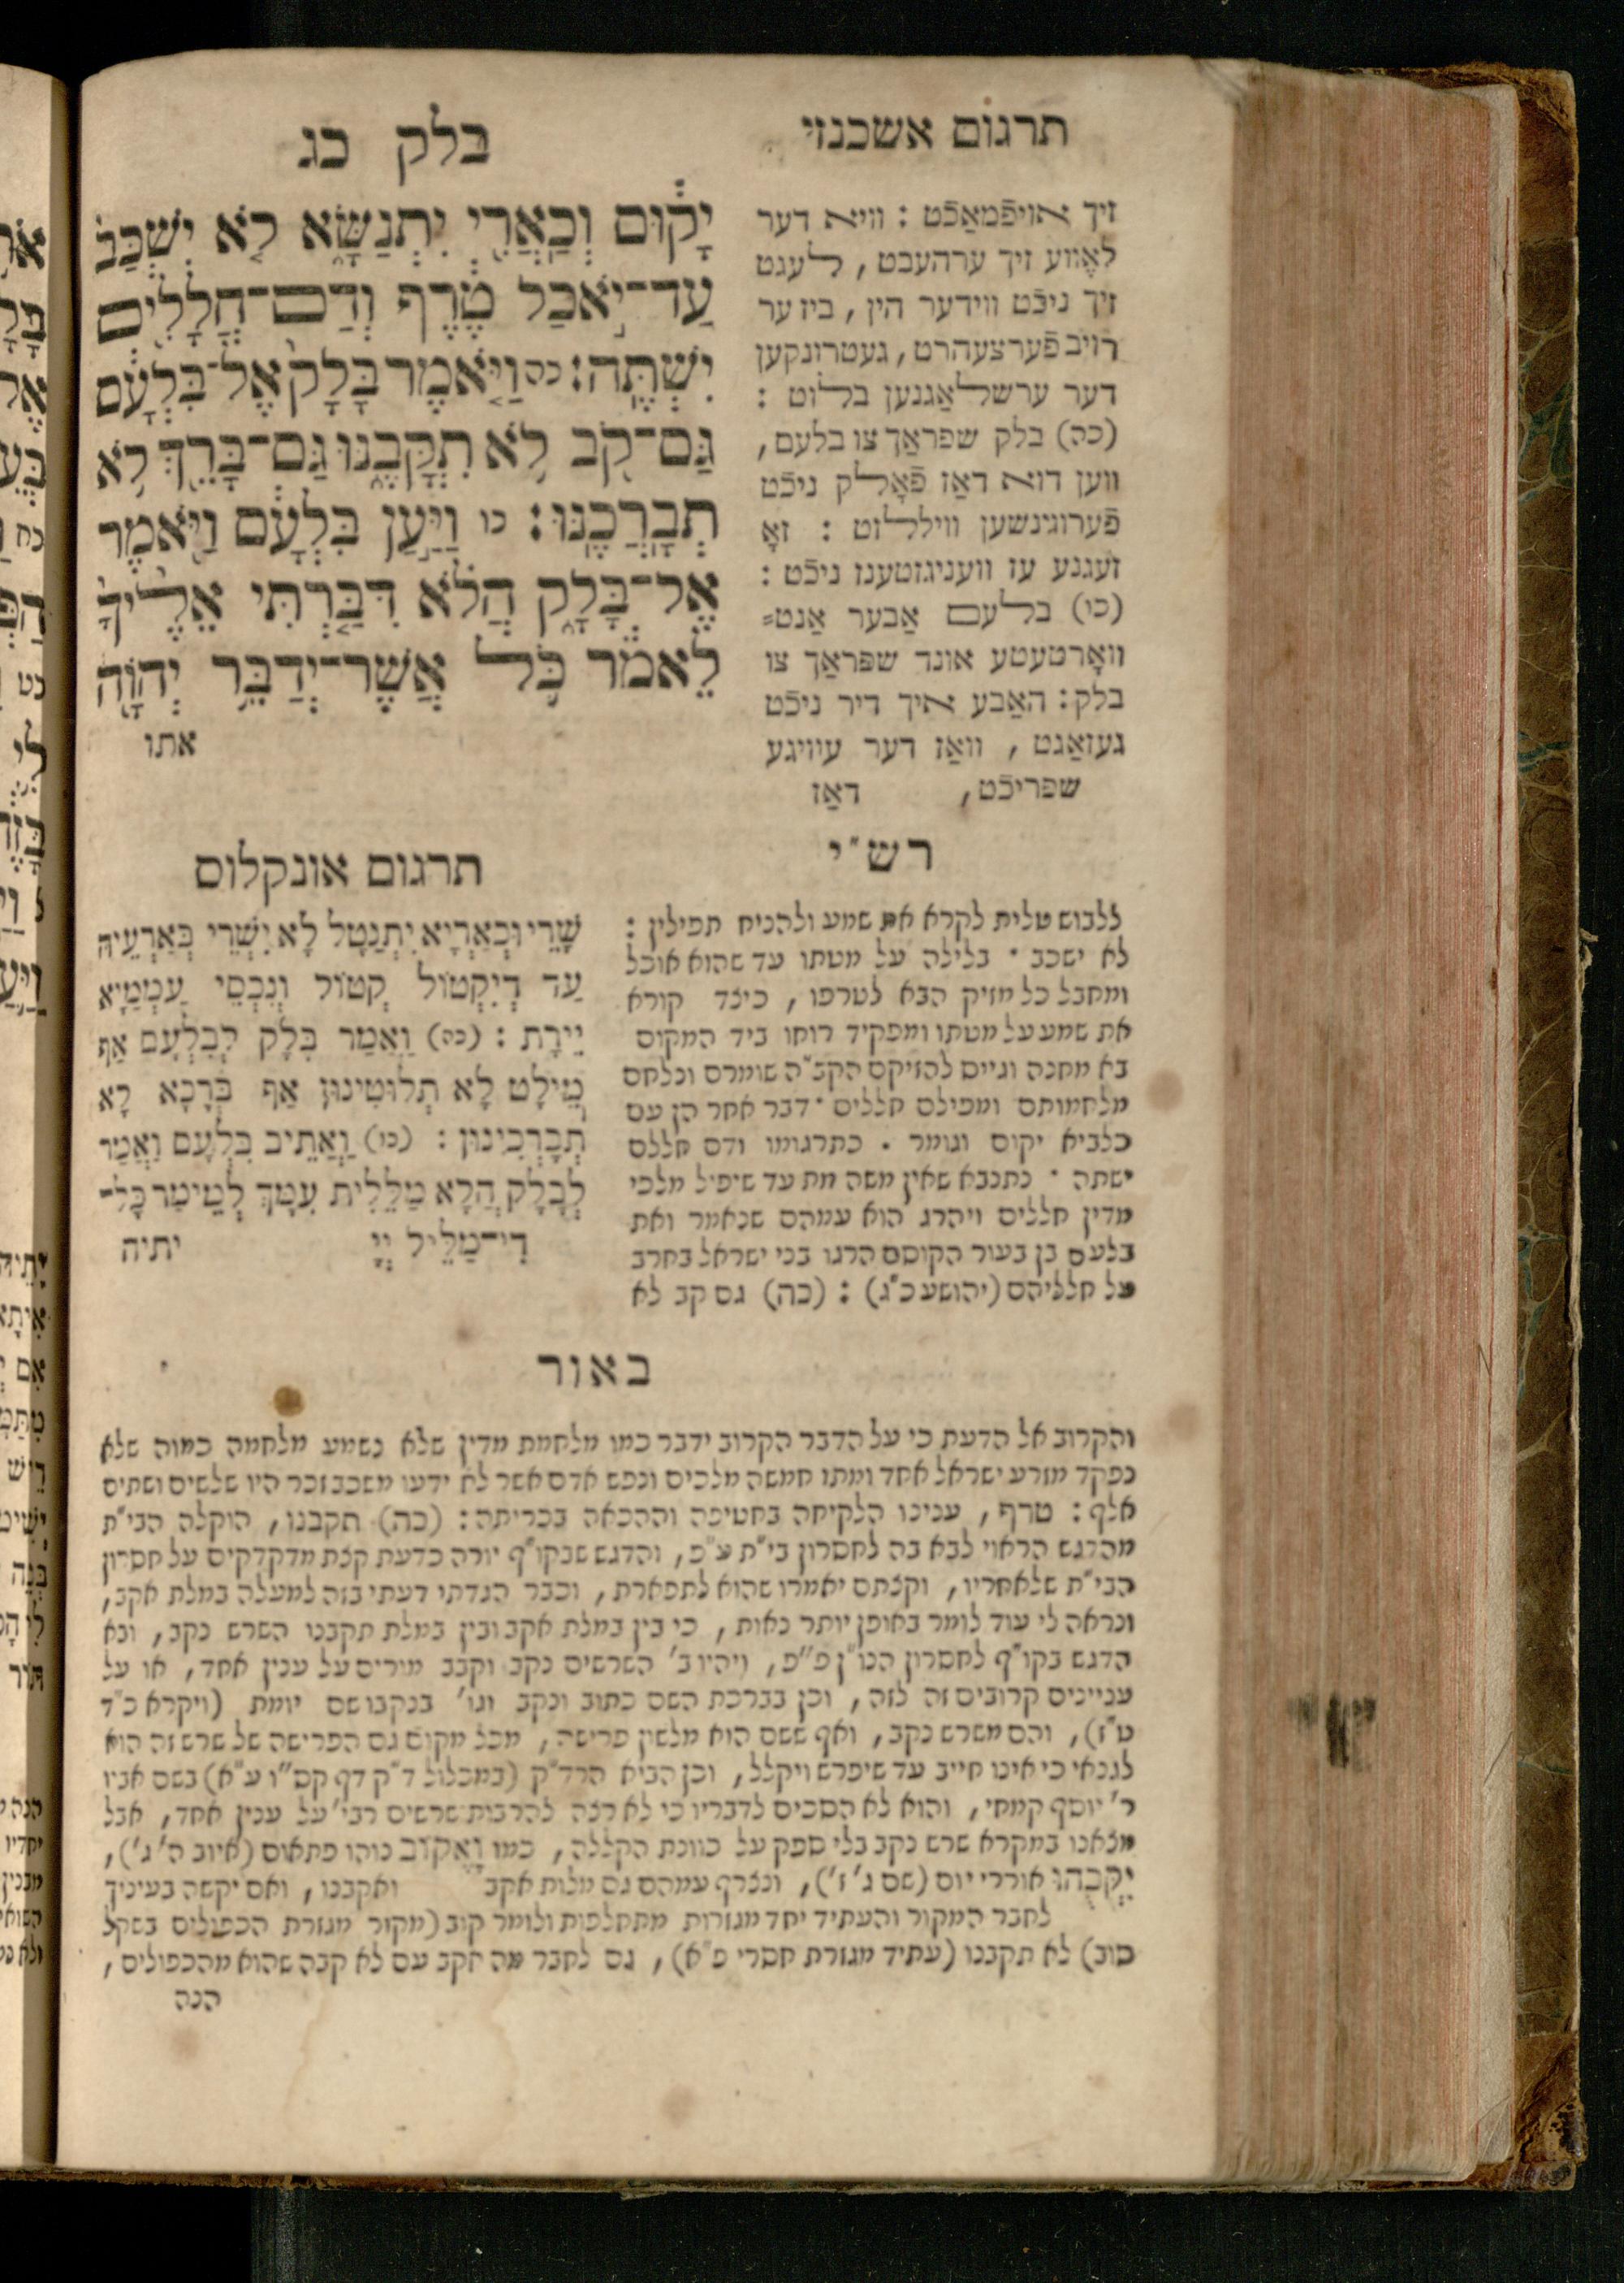 תרגום אשכנזי
בלק כג
יָק֔וּם וְכַֽאֲרִ֖י יִתְנַשָּׂ֑א לֹ֤א יִשְׁכַּב֙
עַד־יֹ֣אכַל טֶ֔רֶף וְדַם־חֲלָלִ֖ים
יִשְׁתֶּֽה׃ כה וַיֹּ֤אמֶר בָּלָק֙ אֶל־בִּלְעָ֔ם
גַּם־קֹ֖ב לֹ֣א תִקֳּבֶ֑נּוּ גַּם־בָּרֵ֖ךְ לֹ֥א
תְבָרְכֶֽנּוּ׃ כו וַיַּ֣עַן בִּלְעָ֔ם וַיֹּ֖אמֶר
אֶל־בָּלָ֑ק הֲלֹ֗א דִּבַּ֤רְתִּי אֵלֶ֙יךָ֙
לֵאמֹ֔ר כֹּ֛ל אֲשֶׁר־יְדַבֵּ֥ר יְהוָ֖ה
אתו
זיך אויפֿמאַכֿט : וויא דער
לאֶווע זיך ערהעבט, לעגט
זיך ניכֿט ווידער הין, ביז ער
רויב פֿערצעהרט, געטרונקען
דער ערשלאַגנען בלוט :
(כה) בלק שפראַך צו בלעם,
ווען דוא דאַז פֿאָלק ניכֿט
פֿערווינשען ווילזט : זאָ
זעגנע עז וועניגזטענז ניכֿט :
(כו) בלעם אַבער אַנט=
וואָרטעטע אונד שפראַך צו
בלק : האַבע איך דיר ניכֿט
געזאַגט, וואַז דער עוויגע
שפריכֿט, דאַז
רש"י
ללבוש טלית לקרא את שמע ולהניח תפילין :
לא ישכב · בלילה על מטתו עד שהוא אוכל
ומחבל כל מזיק הבא לטרפו, כיצד קורא
את שמע על מטתו ומפקיד רוחו ביד המקום
בא מחנה וגייס להזיקם הקב"ה שומרם ונלחם
מלחמותם ומפילם חללים · דבר אחר הן עם
כלביא יקום וגומר . כתרגומו ודם חללם
ישתה · נתנבא שאין משה מת עד שיפיל מלכי
מדין חללים ויהרג הוא עמהם שנאמר ואת
בלעם בן בעור הקוסם הרגו בני ישראל בחרב
על חלליהם (יהושע כ"ג) : (כה) גם קב לא
תרגום אונקלוס
שָׁרֵי וּכְאַרְיָא יִתְנַטָּל לָא יִשְׁרֵי בְּאַרְעֵיהּ
עַד דְיִקְטוֹל קְטוֹל וְנִכְסֵי עַמְמַיָא
יֵירָת : (כה) וַאֲמַר בָּלָק לְבִלְעָם אַף
מֵילָט לָא תְלוּטִינוּן אַף בְּרָכָא לָא
תְבָרְכִינוּן : (כו) וַאֲתֵיב בִּלְעָם וַאֲמַר
לְבָלָק הֲלָא מַלֵּלִית עִמָּךְ לְמֵימַר כָּל־
דִי־מַלֵּיל יְיָ יתיה
באור
והקרוב אל הדעת כי על הדבר הקרוב ידבר כמו מלחמת מדין שלא נשמע מלחמה כמוה שלא
נפקד מזרע ישראל אחד ומתו חמשה מלכים ונפש אדם אשר לא ידעו משכב זכר היו שלשים ושתים
אלף : טרף, ענינו הלקיחה בחטיפה וההכאה בכריתה : (כה) תקבנו, הוקלה הבי"ת
מהדגש הראוי לבא בה לחסרון בי"ת ע"פ, והדגש שבקו"ף יורה כדעת קצת מדקדקים על חסרון
הבי"ת שלאחריו, וקצתם יאמרו שהוא לתפארת, וכבר הגדתי דעתי בזה למעלה במלת אקב,
ונראה לי עוד לומר באופן יותר נאות, כי בין במלת אקב ובין במלת תקבנו השרש נקב, ובא
הדגש בקו"ף לחסרון הנו"ן פ"פ, ויהיו ב' השרשים נקב וקבב מורים על ענין אחד, או על
עניינים קרובים זה לזה, וכן בברכת השם כתוב ונקב וגו' בנקבו שם יומת (ויקרא כ"ד
ט"ז), והם משרש נקב, ואף ששם הוא מלשון פרישה, מכל מקום גם הפרישה של שרש זה הוא
לגנאי כי אינו חייב עד שיפרש ויקלל, וכן הביא הרד"ק (במכלול ד"ק דף קס"ו ע"א) בשם אביו
ר' יוסף קמחי, והוא לא הסכים לדבריו כי לא רצה להרבות שרשים רבי' על ענין אחד, אבל
מצאנו במקרא שרש נקב בלי ספק על כוונת הקללה, כמו וָאֶקּוֹב נוהו פתאום (איוב ה' ג'),
יִקְּבֻהוּ אוררי יום (שם ג' ז'), ונצרף עמהם גם מלות אקב ואקבנו, ואם יקשה בעיניך
לחבר המקור והעתיד יחד מגזרות מתחלפות ולומר קוב (מקור מגזרת הכפולים בשקל
סוב) לא תקבנו (עתיד מגזרת חסרי פ"א), גם לחבר מה אקב עם לא קבה שהוא מהכפולים,
הנה